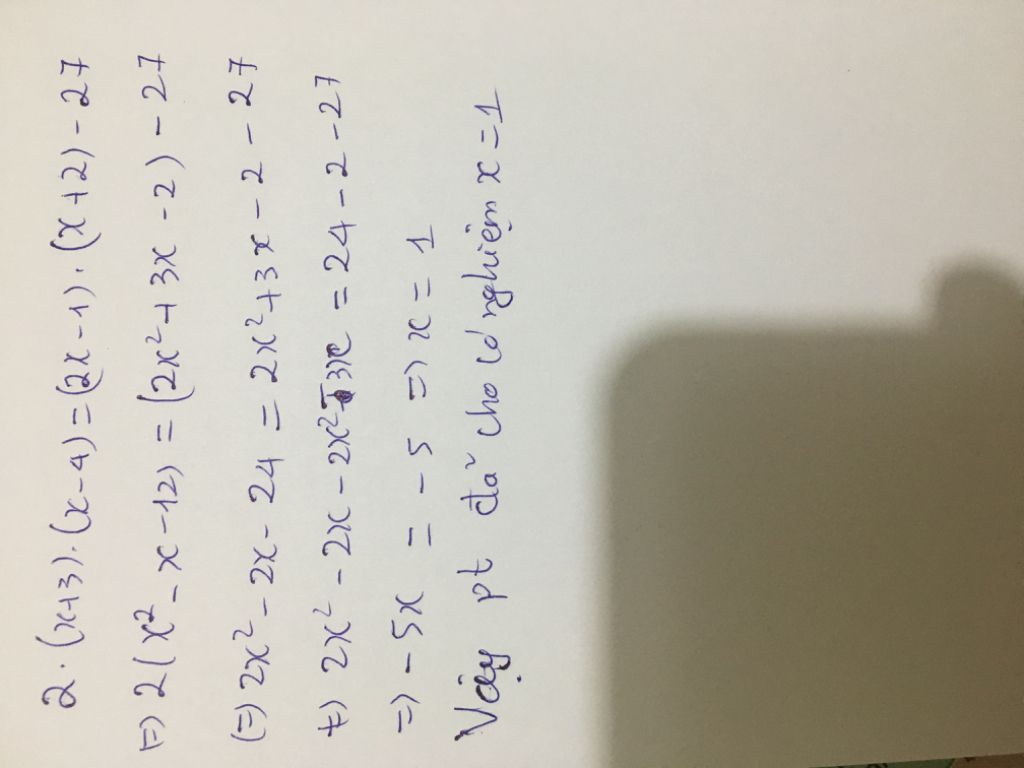 2.(x+3).(x-4)=(2x-1).(x+2)-27
=) 2(x²-x-12) = (2x²+3x-2)-27
(=) 2x²-2x-24 = 2x²+3x-2-27
t=) 2x²-2x-2x²-3x = 24-2-27
=) -5x = -5 =) x = 1
Vậy pt đã cho có nghiệm x=1